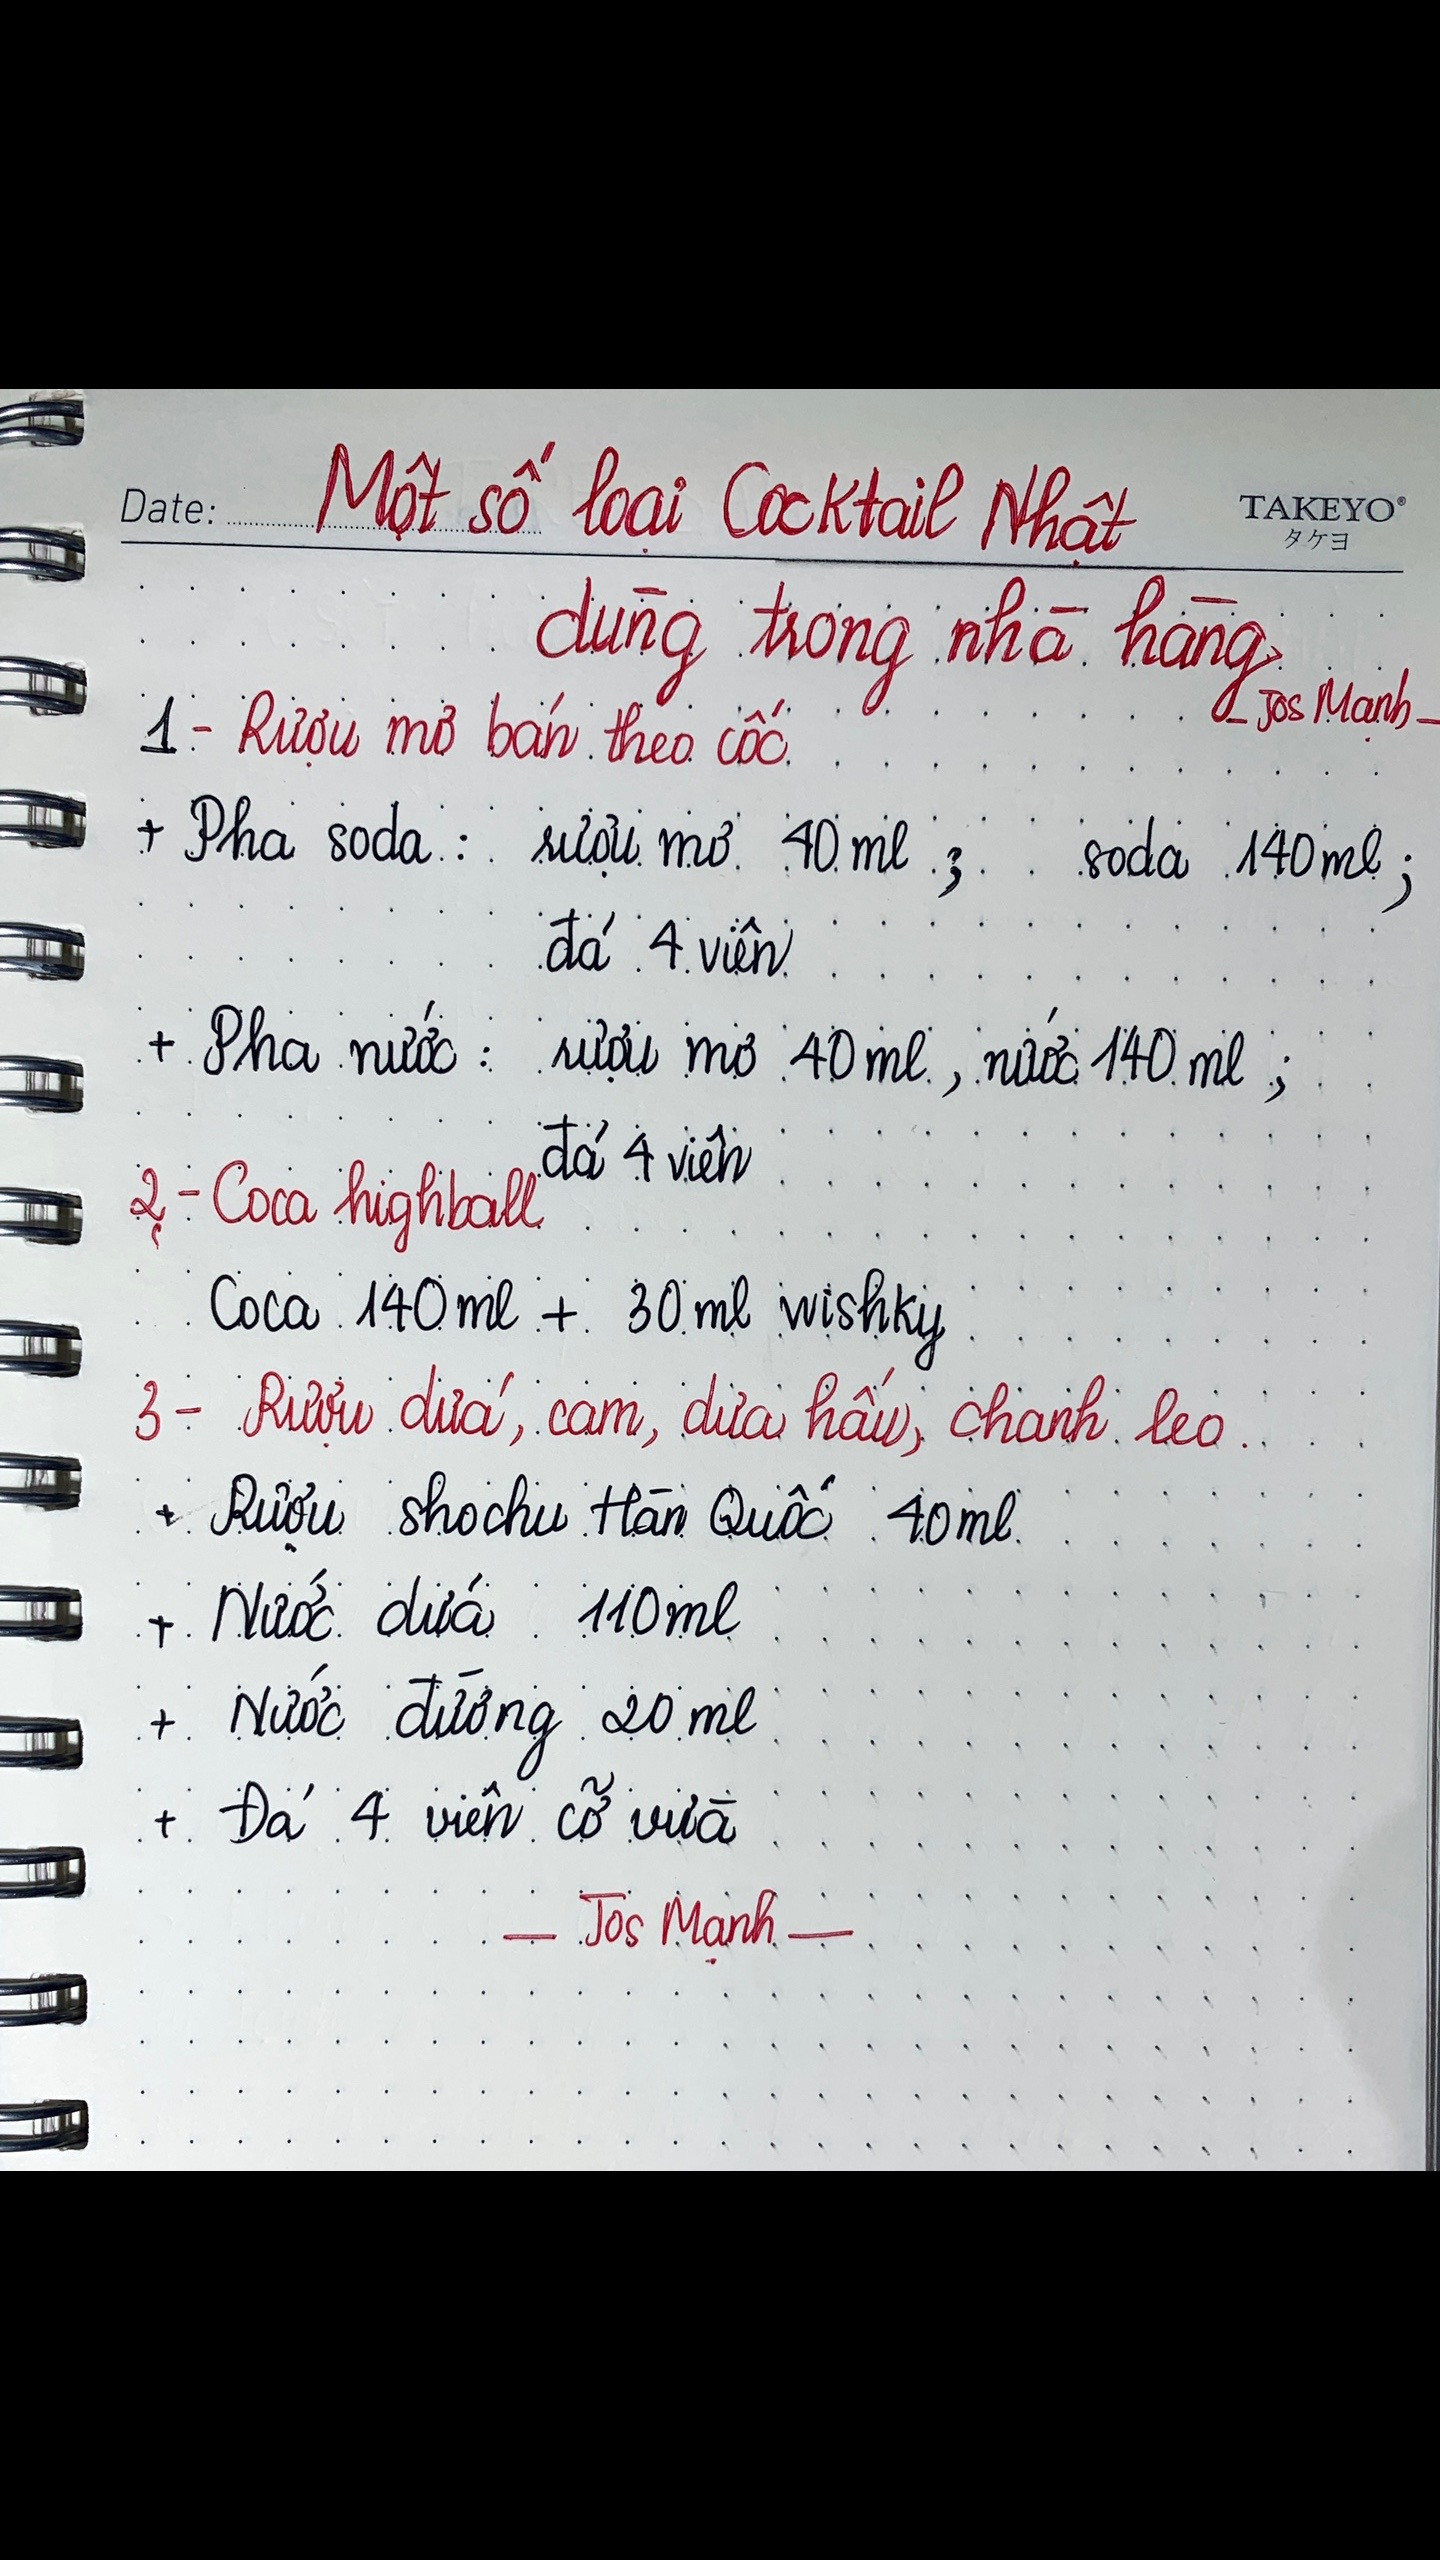 Date: Một số loại Cocktail Nhật
TAKEYO®
タケヨ
dùng trong nhà hàng
- Jos Mạnh -
1 - Rượu mơ bán theo cốc
+ Pha soda : rượu mơ 40 ml ; soda 140 ml ;
đá 4 viên
+ Pha nước : rượu mơ 40 ml , nước 140 ml ;
đá 4 viên
2 - Coca highball
Coca 140 ml + 30 ml wishky
3 - Rượu dứa, cam, dưa hấu, chanh leo .
+ Rượu shochu Hàn Quốc 40 ml
+ Nước dứa 110 ml
+ Nước đường 20 ml
+ Đá 4 viên cỡ vừa
- Jos Mạnh -